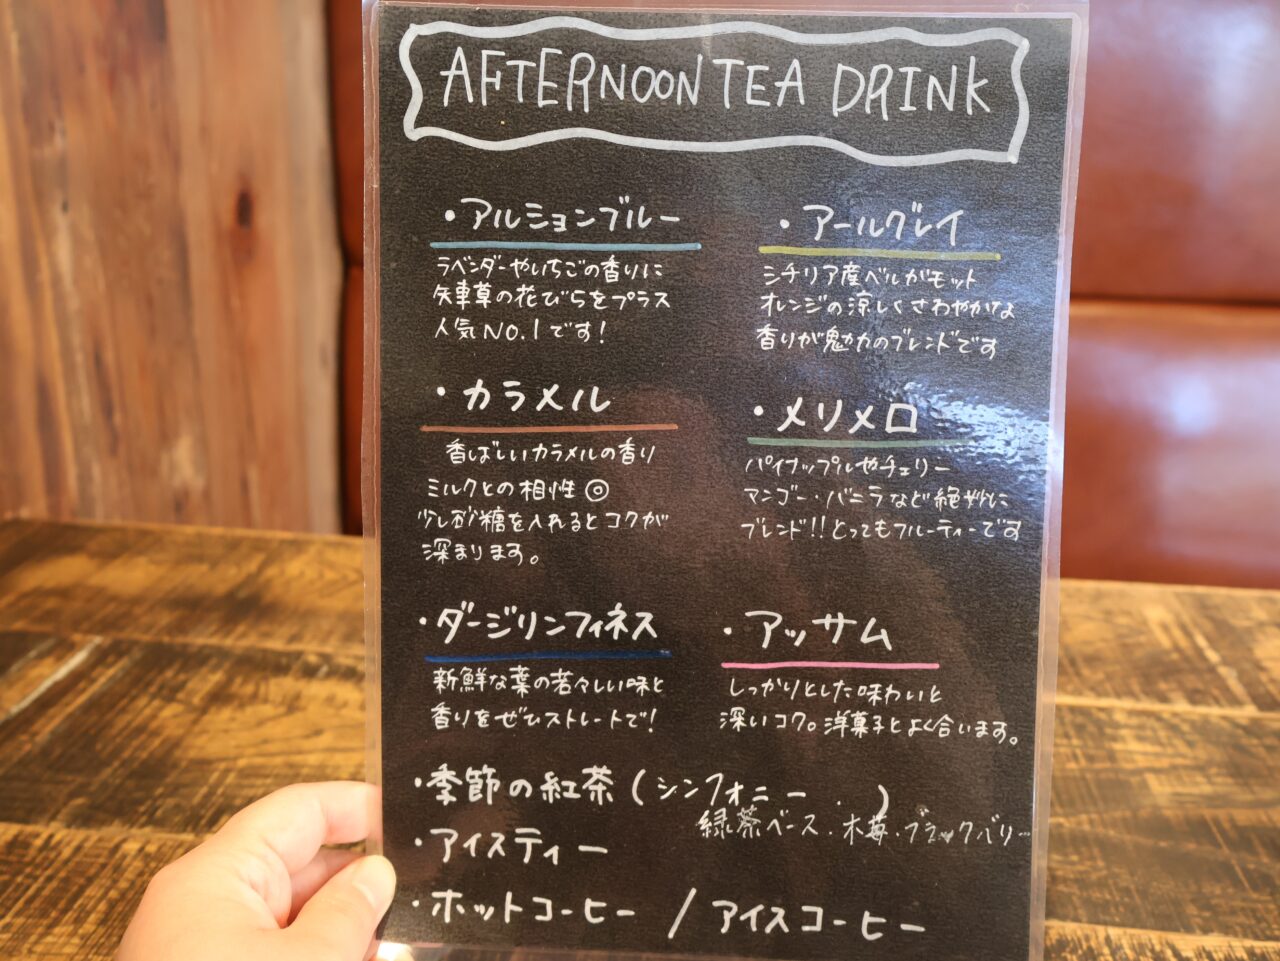 AFTERNOON TEA DRINK
・アルションブルー
ラベンダーやいちごの香りに
矢車草の花びらをプラス
人気NO.1です!
・アールグレイ
シチリア産ベルガモット
オレンジの涼しくさわやかな
香りが魅力のブレンドです
・カラメル
香ばしいカラメルの香り
ミルクとの相性◎
少し砂糖を入れるとコクが
深まります。
・メリメロ
パイナップルやチェリー
マンゴー・バニラなど絶妙に
ブレンド!!とってもフルーティーです
・ダージリンフィネス
新鮮な葉の若々しい味と
香りをぜひストレートで!
・アッサム
しっかりとした味わいと
深いコク。洋菓子とよく合います。
・季節の紅茶(シンフォニー・)
緑茶ベース・木苺・ブラックベリー…
・アイスティー
・ホットコーヒー / アイスコーヒー